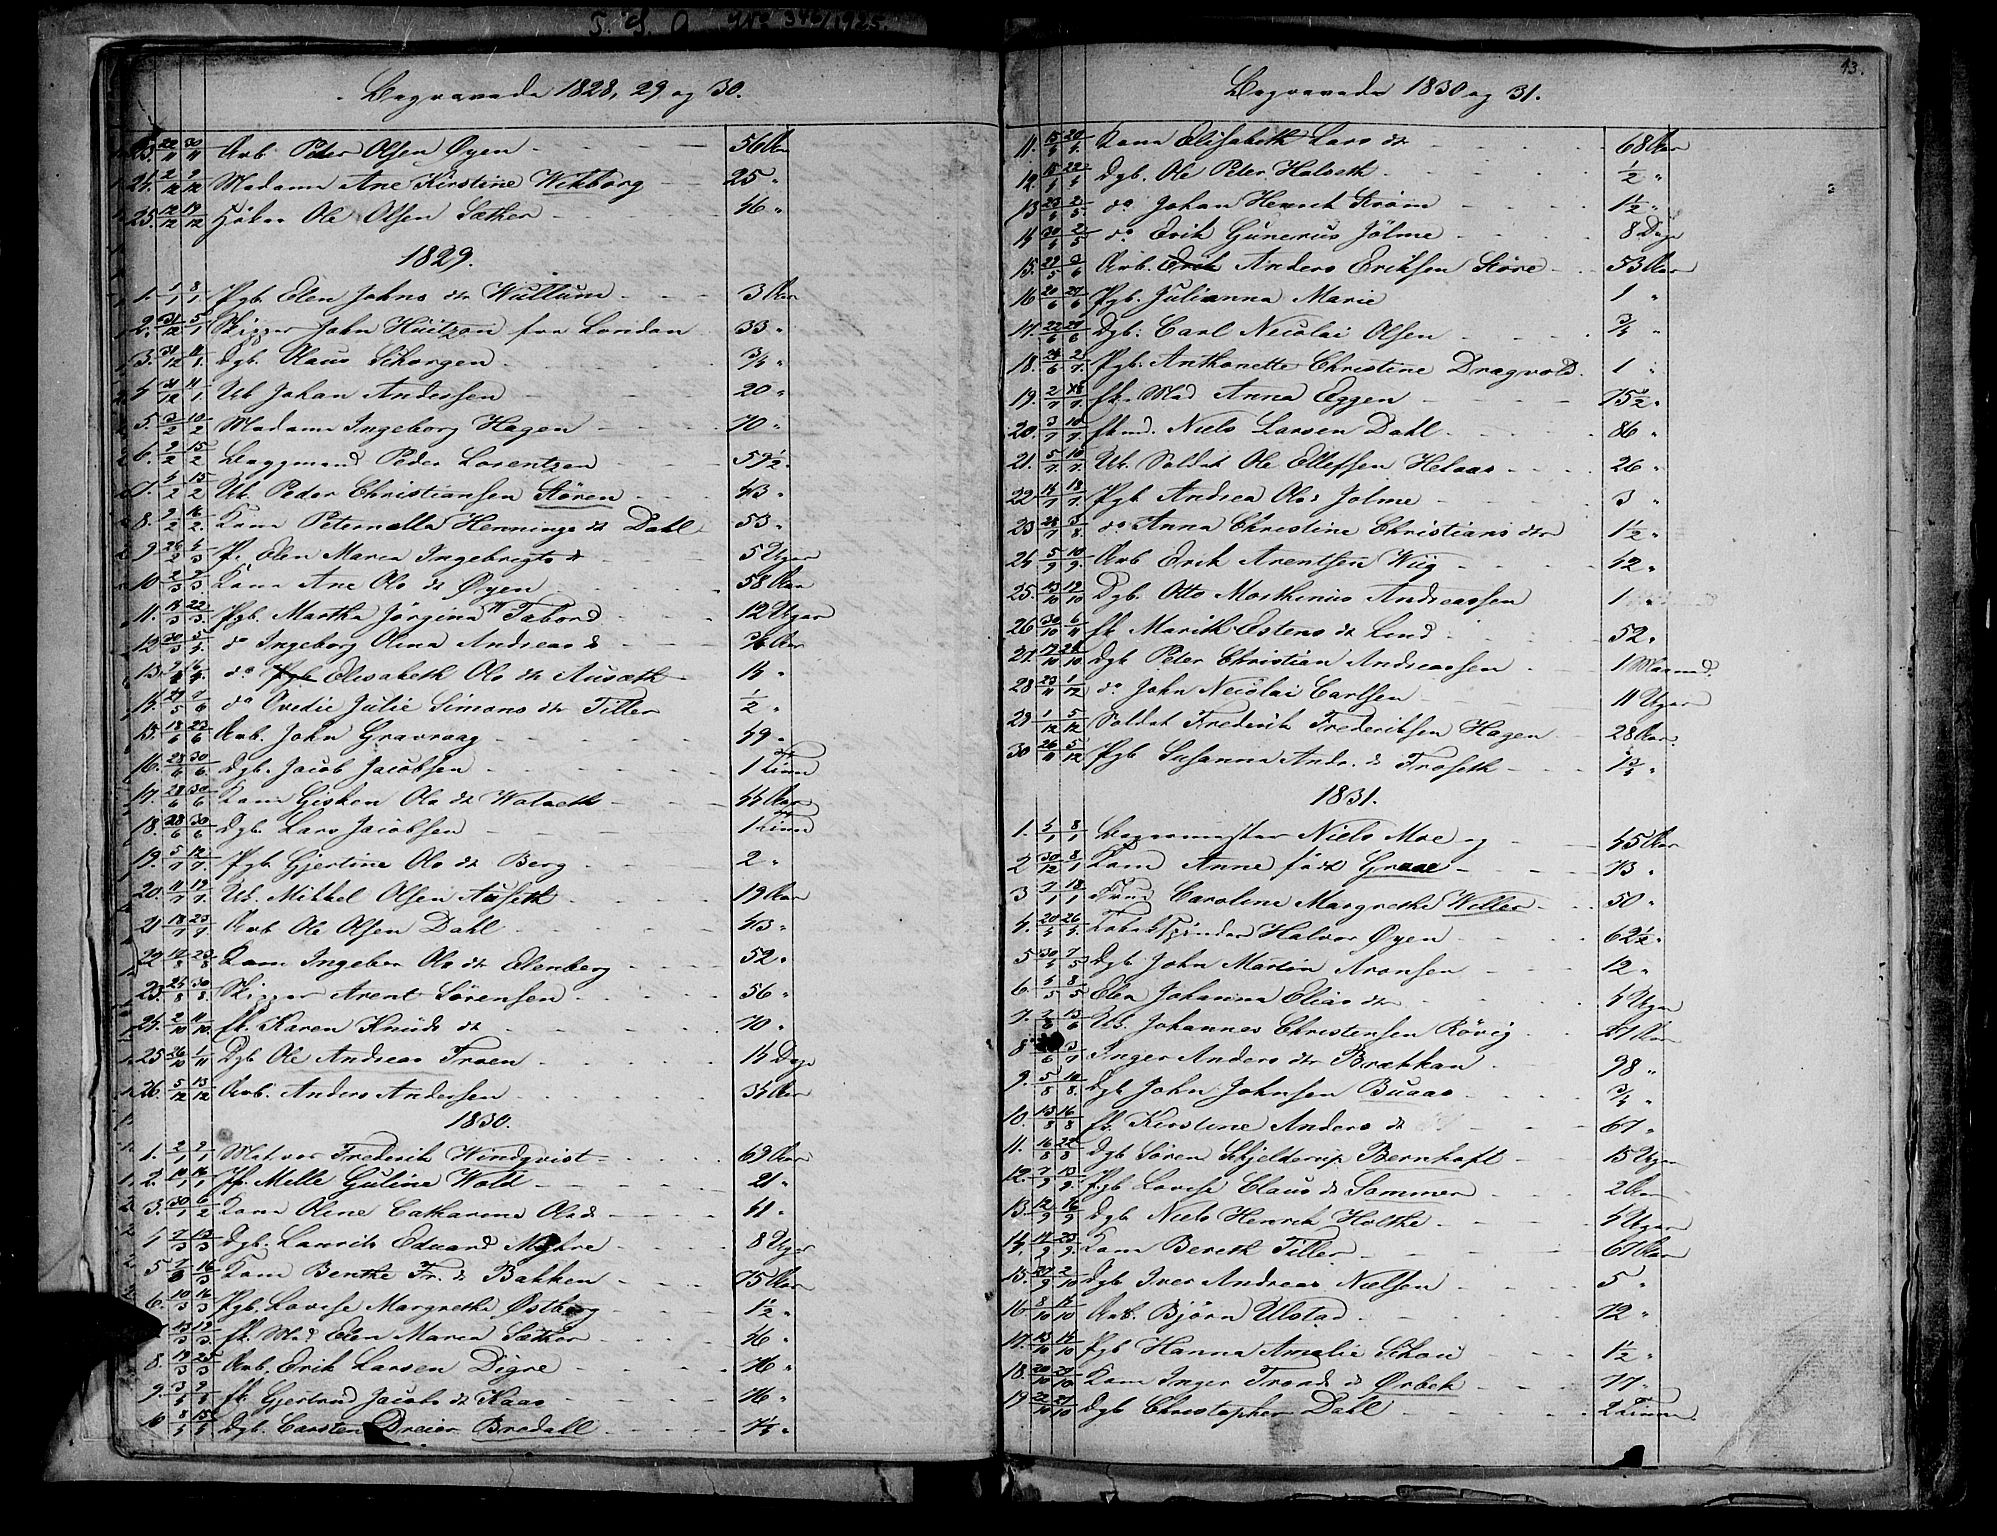 Begravede 1828, 29 og 30.
23. 22/11 30/11 Arb. Peder Olsen Øyen 56 Aar
24. 2/12 9/12 Madame Ane Kirstine Wikborg 25 "
25. 12/12 19/12 Ole Olsen Sæther 46 "
1829.
1. 1/1 8/1 Pgb. Elen Johns dr Wullum 3 Aar
2. 31/12 5/1 Skipper John fra London 33 "
3. 31/12 11/1 Dgb. Olaus Schorgen 3/4 "
4 31/12 11/1 Uk Johan Andersen 20 "
5. 3/2 10/2 Madame Ingeborg Hagen 70 "
6. 9/2 15/2 Peder Lorentzen 59 1/2
7. 5/2 15/2 Uk. Peder Christiansen Støren 43 "
8. 9/2 16/2 Kone Peternella Hennings dr Dahl 53 "
9 26/2 4/3 P. Elen Maria Ingebrigts dr 5 Uger
10. 2/3 9/3 Kone Ane Ols dr Øyen 58 Aar
11. 14/3 22/3 Pgb. Martha Jørgine Tabord 12 Uger
12 30/3 5/4 do Ingeborg Olina Andreas d Aar
13. do Elisabeth Ols dr Ausæth 14 "
14. do Ovedie Julie Simons dr Tiller 1/2 "
15. 18/6 23/6 Arb. John Gravraag 49 "
16. 28/6 30/6 Dgb. Jacob Jacobsen 1 Time
17. 28/6 30/6 Kone Gisken Ols dr Wolseth 44 Aar
18. 28/6 30/6 Dgb. Lars Jacobsen 1 Time
19. 5/7 12/7 Pgb. Gjertine Ols dr Berg 2 "
20. 11/7 19/7 Uk. Mikkel Olsen Auseth 19 Aar
21 18/7 23/7 Arb Ole Olsen Dahl 43 "
22 14/8 23/8 Kone Ingebor Ols dr Elenberg 52 "
23. 25/8 30/8 Skipper Arent Sørensen 56 "
24. 2/10 11/10 fk. Karen Knuds dr 70 "
25 26/10 1/11 Dgb Ole Andreas Troen 14 Dage
26. 5/12 13/12 Arb. Anders Andersen 34 Aar
1830.
1. 2/1 7/1 Matros Frederik Windqvist 69 Aar
2. 10/1 16/1 Jf. Melle Guline Wold 21 "
3. 30/1 6/2 Kone Oline Catharina Olsd. 41 "
4 7/3 12/3 Dgb. Laurits Eduard Myhre 8 Uger
5 7/3 16/3 Kone Benthe Fr. d Bakken 75 Aar
6. 10/3 16/3 Pgb. Lovise Margrethe Østberg 1 1/2 "
13/3 19/3 fk. Mad Elen Maria Sæther 46 "
8. 19/3 25/3 Arb. Erik Larsen Digre 76 "
9. 3/4 9/4 fk Gjertrud Jacobs dr Kaas 76 "
10 8/4 15/4 Dgb. Carsten Dreier Bredahl
Begravede 1830 og 31.
13.
11. 15/4 20/4 Kone Elisabeth Lars dr 68 Aar
12. 15/4 22/4 Dgb. Ole Peter Halseth 1/2 "
13 23/4 2/5 do Johan Henrik Strøm 1 1/2 "
14 30/4 2/5 do Erik Gunerus Jölme 8 Dage
15. 29/5 3/6 Arb. Erik Anders Eriksen Støre 53 Aar
16 20/6 27/6 Pgb. Julianna Marie 1 "
17. 22/6 27/6 Dgb. Carl Nicolai Olsen 3/4 "
18. 24/6 2/7 Pgb. Anthonette Christine Dragvold 1 "
19. 2/7 fk. Mad Anna Eggen 75 1/2 "
20. 3/7 10/7 fkmd. Niels Larsen Dahl 86 "
21. 5/7 10/7 Uk. Soldat Ole Ellefsen Helaas 26 "
22 14/7 18/7 Pgb Andrea Olsd Jolme 3 "
23 28/7 3/8 do Anna Christine Christians dtr 1 1/2 "
24 5/9 10/9 Arb Erik Arentsen Wiig 42 "
25. 13/10 19/10 Dgb. Otto Mosthinus Andreassen 1 "
26 30/10 6/11 fk Marith Estens dr Lund 52 "
27. 17/10 24/10 Dgb Peter Christian Andreassen 1 Maaned
28 23/11 1/12 do John Nicolai Carlsen 11 Uger
29 1/12 5/12 Soldat Frederik Frederiksen Hagen 28 Aar
30 26/11 5/12 Pgb Susanna Ands. d Froseth 1 3/4 "
1831.
1. 4/1 8/1 Niels Moe og 45 Aar
2 30/12 8/1 Kone Anne født Graae 73 "
3 7/1 18/1 Frue Caroline Margrethe Willer 50 "
4. 20/4 26/4 Tobakspinder Halvor Øyen 62 1/2 "
5 30/4 7/5 Dgb John Martin Aronsen 12 "
6. 4/5 8/5 Elen Johanna Elias dr 4 Uger
7. Uk. Johannes Christensen Røvig 47 Aar
8 Inger Anders dtr Brækkan 98 "
9. 5/8 10/8 Dgb John Johnsen Buaas 3/4 "
10. 13/8 16/8 fk. Kirstine Anders dr 67 "
11. 16/8 22/8 Dgb Søren Schjelderup Bernhoft 15 Uger
12. 7/9 13/9 Pgb Lovise Claus dr Sommer 2 Aar
13. 12/9 16/9 Dgb Niels Henrik Holthe 4 Uger
14. 17/9 23/9 Kone Bereth Tiller 67 Aar
15. 27/9 2/10 Dgb Iver Andreas Nielsen 5 "
16 8/10 14/10 Arb. Bjørn Ulstad 72 "
17. 13/10 14/10 Pgb Hanna Amalie Schou 1 1/2 "
18. 20/10 27/10 Kone Inger Trond d Ørbek 77 "
19 22/10 27/10 Dgb Christopher Dahl 2 Timer